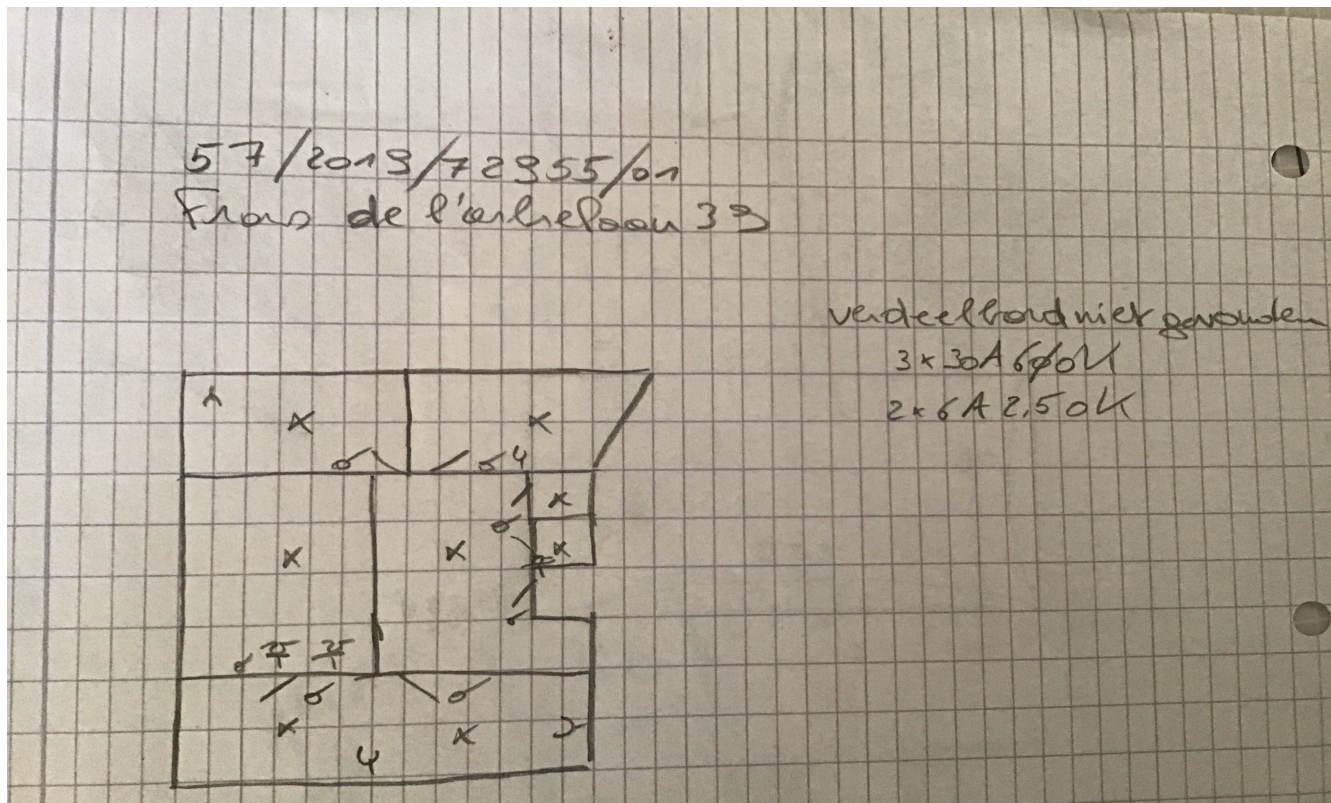 57/2019/72955/01
Frans de l'arbrelaan 39
verdeelbord niet gevonden
3 x 30A 6 OK
2 x 6A 2,5 OK